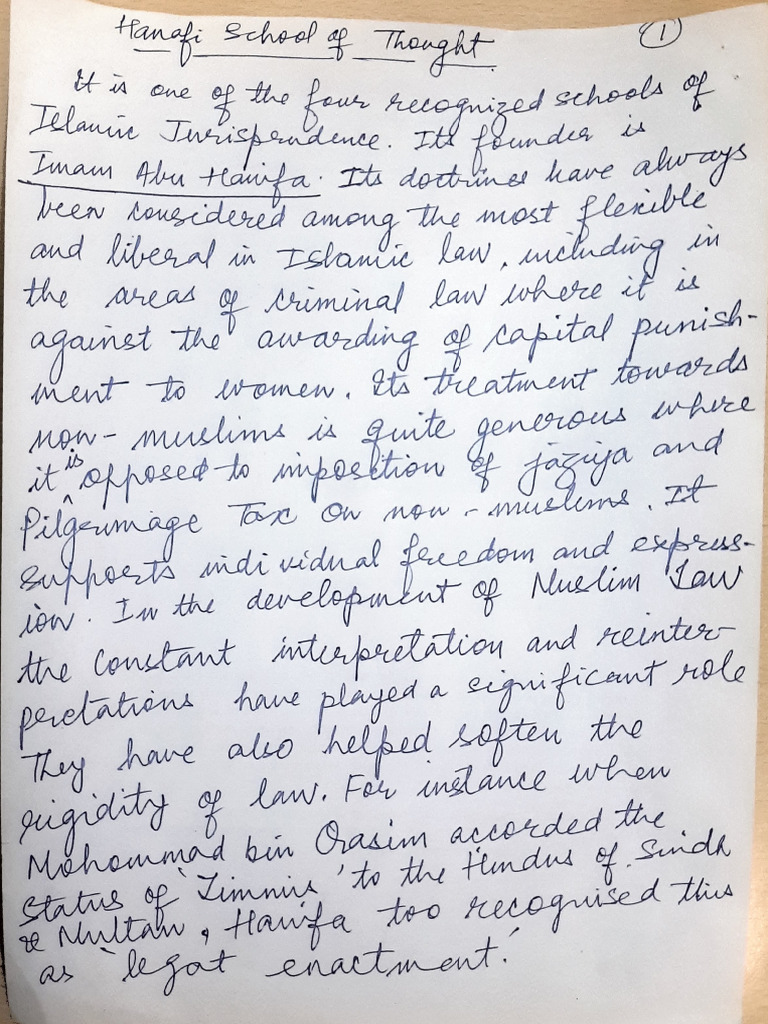 Hanafi School of Thought
1
It is one of the four recognized schools of
Islamic Jurisprudence. Its founder is
Imam Abu Hanifa. Its doctrines have always
been considered among the most flexible
and liberal in Islamic law, including in
the areas of criminal law where it is
against the awarding of capital punish-
ment to women. Its treatment towards
non-muslims is quite generous where
it is opposed to imposition of jaziya and
Pilgrimage Tax on non-muslims. It
supports individual freedom and express-
ion. In the development of Muslim Law
the constant interpretation and reinter-
pretations have played a significant role
They have also helped soften the
rigidity of law. For instance when
Mohommad bin Qasim accorded the
status of 'Zimmis' to the Hindus of Sindh
& Multan, Hanifa too recognised this
as 'legat enactment.'